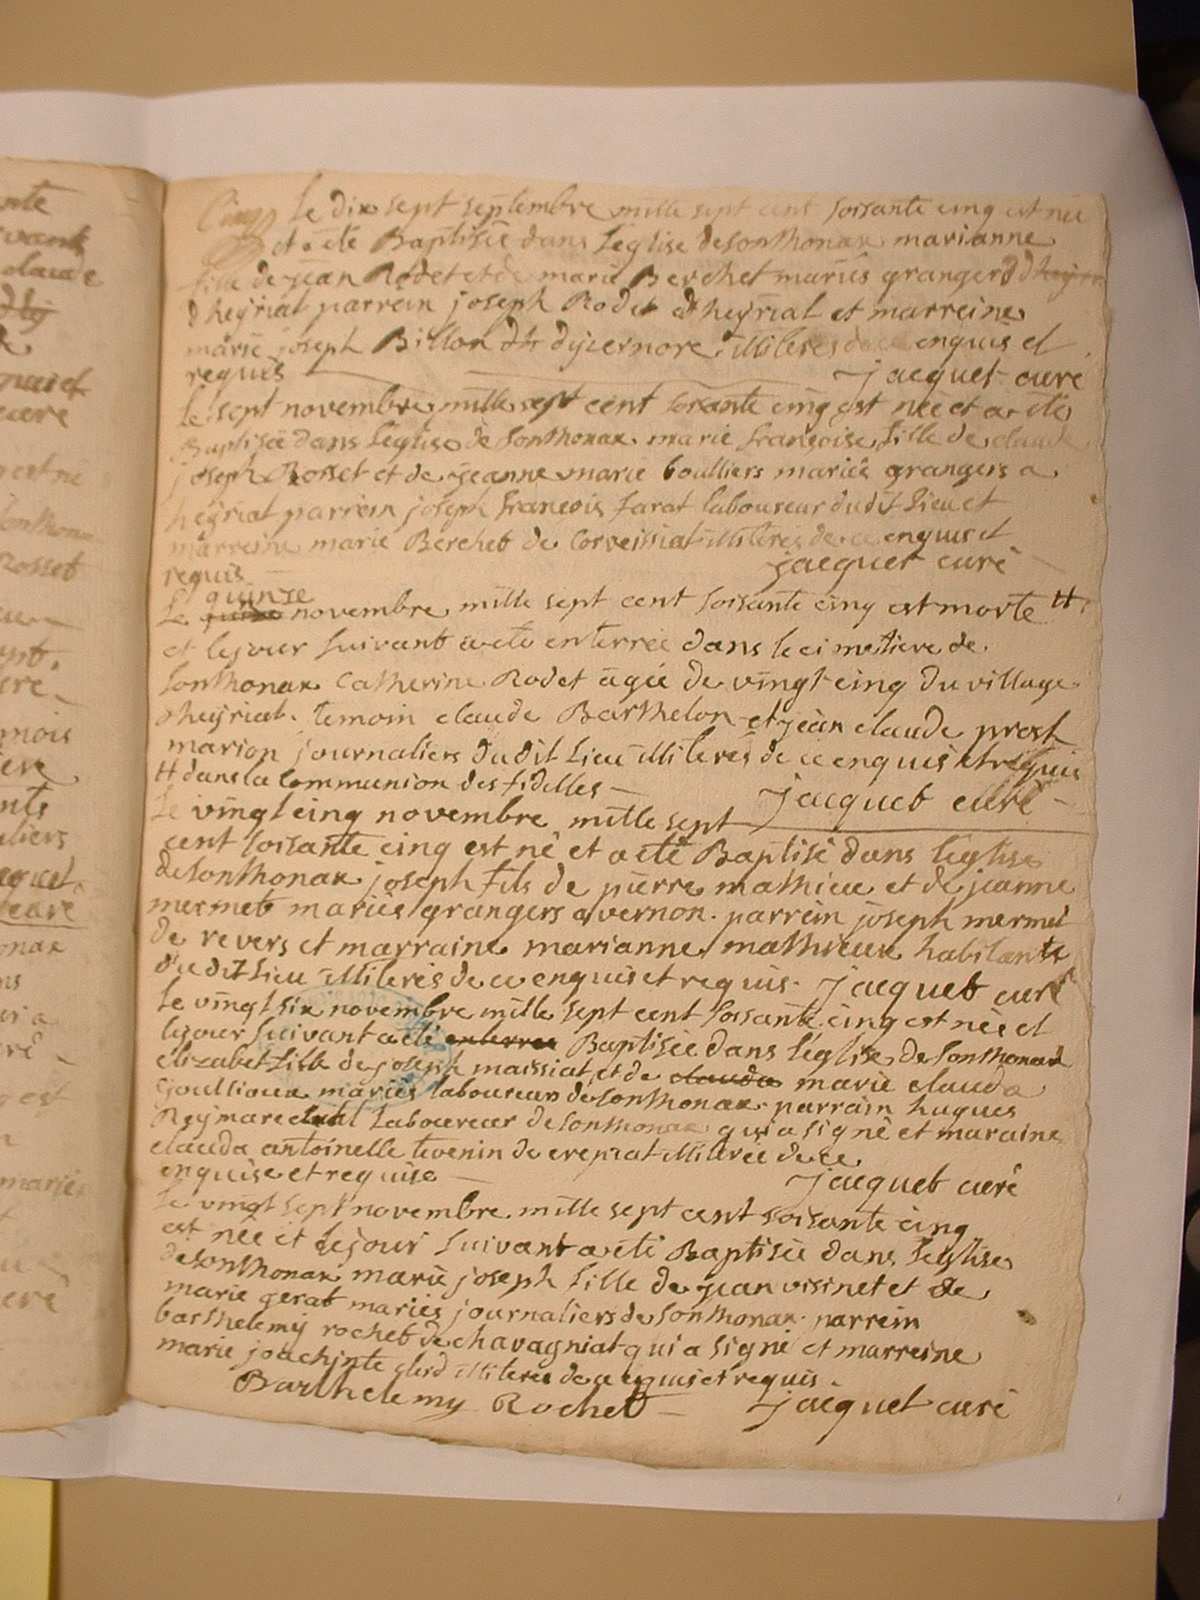 Le dix sept septembre mille sept cent soisante cinq est née
et a été Baptisée dans l'église de Sonthonax marianne
fille de jean Rodet et de marie Berchet mariés grangers
d'heyriat parrein joseph Rodet d'heyriat et marreine
marie joseph Billon d'izernore illiterés de ce enquis et
requis jacquet curé
Le sept novembre mille sept cent soisante cinq est née et a été
Baptisée dans l'église de Sonthonax marie françoise fille de claude
joseph Rosset et de jeanne marie boulliers mariés grangers a
heyriat parrein joseph françois farat laboureur dudit lieu et
marreine marie Berchet de Corveissiat illiterés de ce enquis et
requis jacquet curé
quinze
Le novembre mille sept cent soisante cinq est morte #
et le jour suivant a été enterrée dans le cimetiere de
Sonthonax Catherine Rodet agée de vingt cinq du village
d'heyriat temoin claude Barthelon et jean claude prost
marion journaliers dudit lieu illiterés de ce enquis et requis
# dans la Communion des fidelles jacquet curé
Le vingt cinq novembre mille sept
cent soisante cinq est né et a été Baptisé dans l'église
de Sonthonax joseph fils de pierre mathieu et de jeanne
mermet mariés grangers a vernon parrein joseph mermet
de revers et marraine marianne mathieux habitante
dudit lieu illiterés de ce enquis et requis jacquet curé
Le vingt six novembre mille sept cent soisante cinq est née et
le jour suivant a été enterrée Baptisée dans l'église de Sonthonax
elizabet fille de joseph maissiat et de clauda marie clauda
mariés laboureurs de Sonthonax parrain hugues
Reymare Laboureur de Sonthonax qui a signé et maraine
clauda antoinette tevenin de ceissiat illiterée de ce
enquise et requise jacquet curé
Le vingt sept novembre mille sept cent soisante cinq
est née et le jour suivant a été Baptisée dans l'église
de Sonthonax marie joseph fille de jean visinet et de
marie gerat mariés journaliers de Sonthonax parrein
barthelemy rochet de chavagniat qui a signé et marreine
marie joachinte illiterée de ce enquis et requis
Barthelemy Rochet jacquet curé